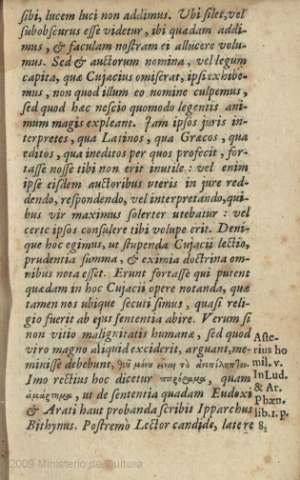 sibi, lucem luci non addimus. Ubi silet, vel
subobscurus esse videtur, ibi quædam addi-
mus, & faculam nostram ei allucere volu-
mus. Sed & auctorum nomina, vel legum
capita, quæ Cujacius omiserat, ipsi exhibe-
mus, non quod illum eo nomine culpemus,
sed quod hæc nescio quomodo legentis ani-
mum magis expleant. Jam ipsos juris in-
terpretes, qua Latinos, qua Græcos, qua
editos, qua ineditos per quos profecit, for-
tasse nosse tibi non erit inutile: vel enim
ipse eisdem auctoribus uteris in jure red-
dendo, respondendo, vel interpretando, qui-
bus vir maximus solerter utebatur: vel
certe ipsos consulere tibi volupe erit. Deni-
que hoc egimus, ut stupenda Cujacii lectio,
prudentia summa, & eximia doctrina om-
nibus nota esset. Erunt fortasse qui putent
quædam in hoc Cujacii opere notanda, quæ
tamen nos ubique secuti simus, quasi reli-
gio fuerit ab ejus sententia abire. Verum si
non vitio malignitatis humanæ, sed quod
viro magno aliquid exciderit, arguant, me-
minisse debebunt,
Imo rectius hoc dicetur παρόραμα, quam
ἁμάρτημα, ut de sententia quadam Eudoxi
& Arati haut probanda scribit Ipparchus
Bithynus. Postremo Lector candide, latere
Aste-
rius ho
mil. v.
In Lud.
& Ar.
Phæn.
lib. 1. p.
8.
2009 Ministerio de Cultura